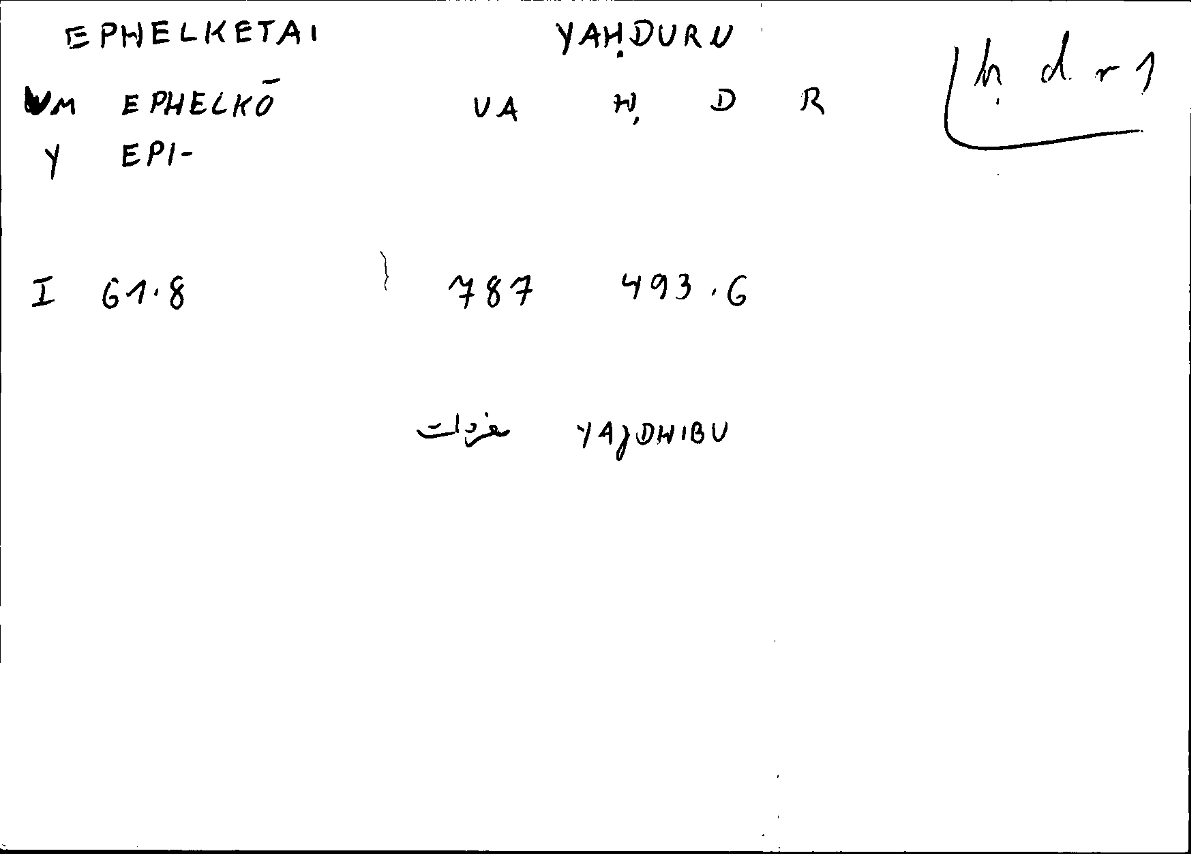 EPHELKETAI YAḤDURU
VM EPHELKŌ VA Ḥ D R ḥ d r 1
Y EPI-
I 61.8 } 787 493.6
مفردات YAJDHIBU